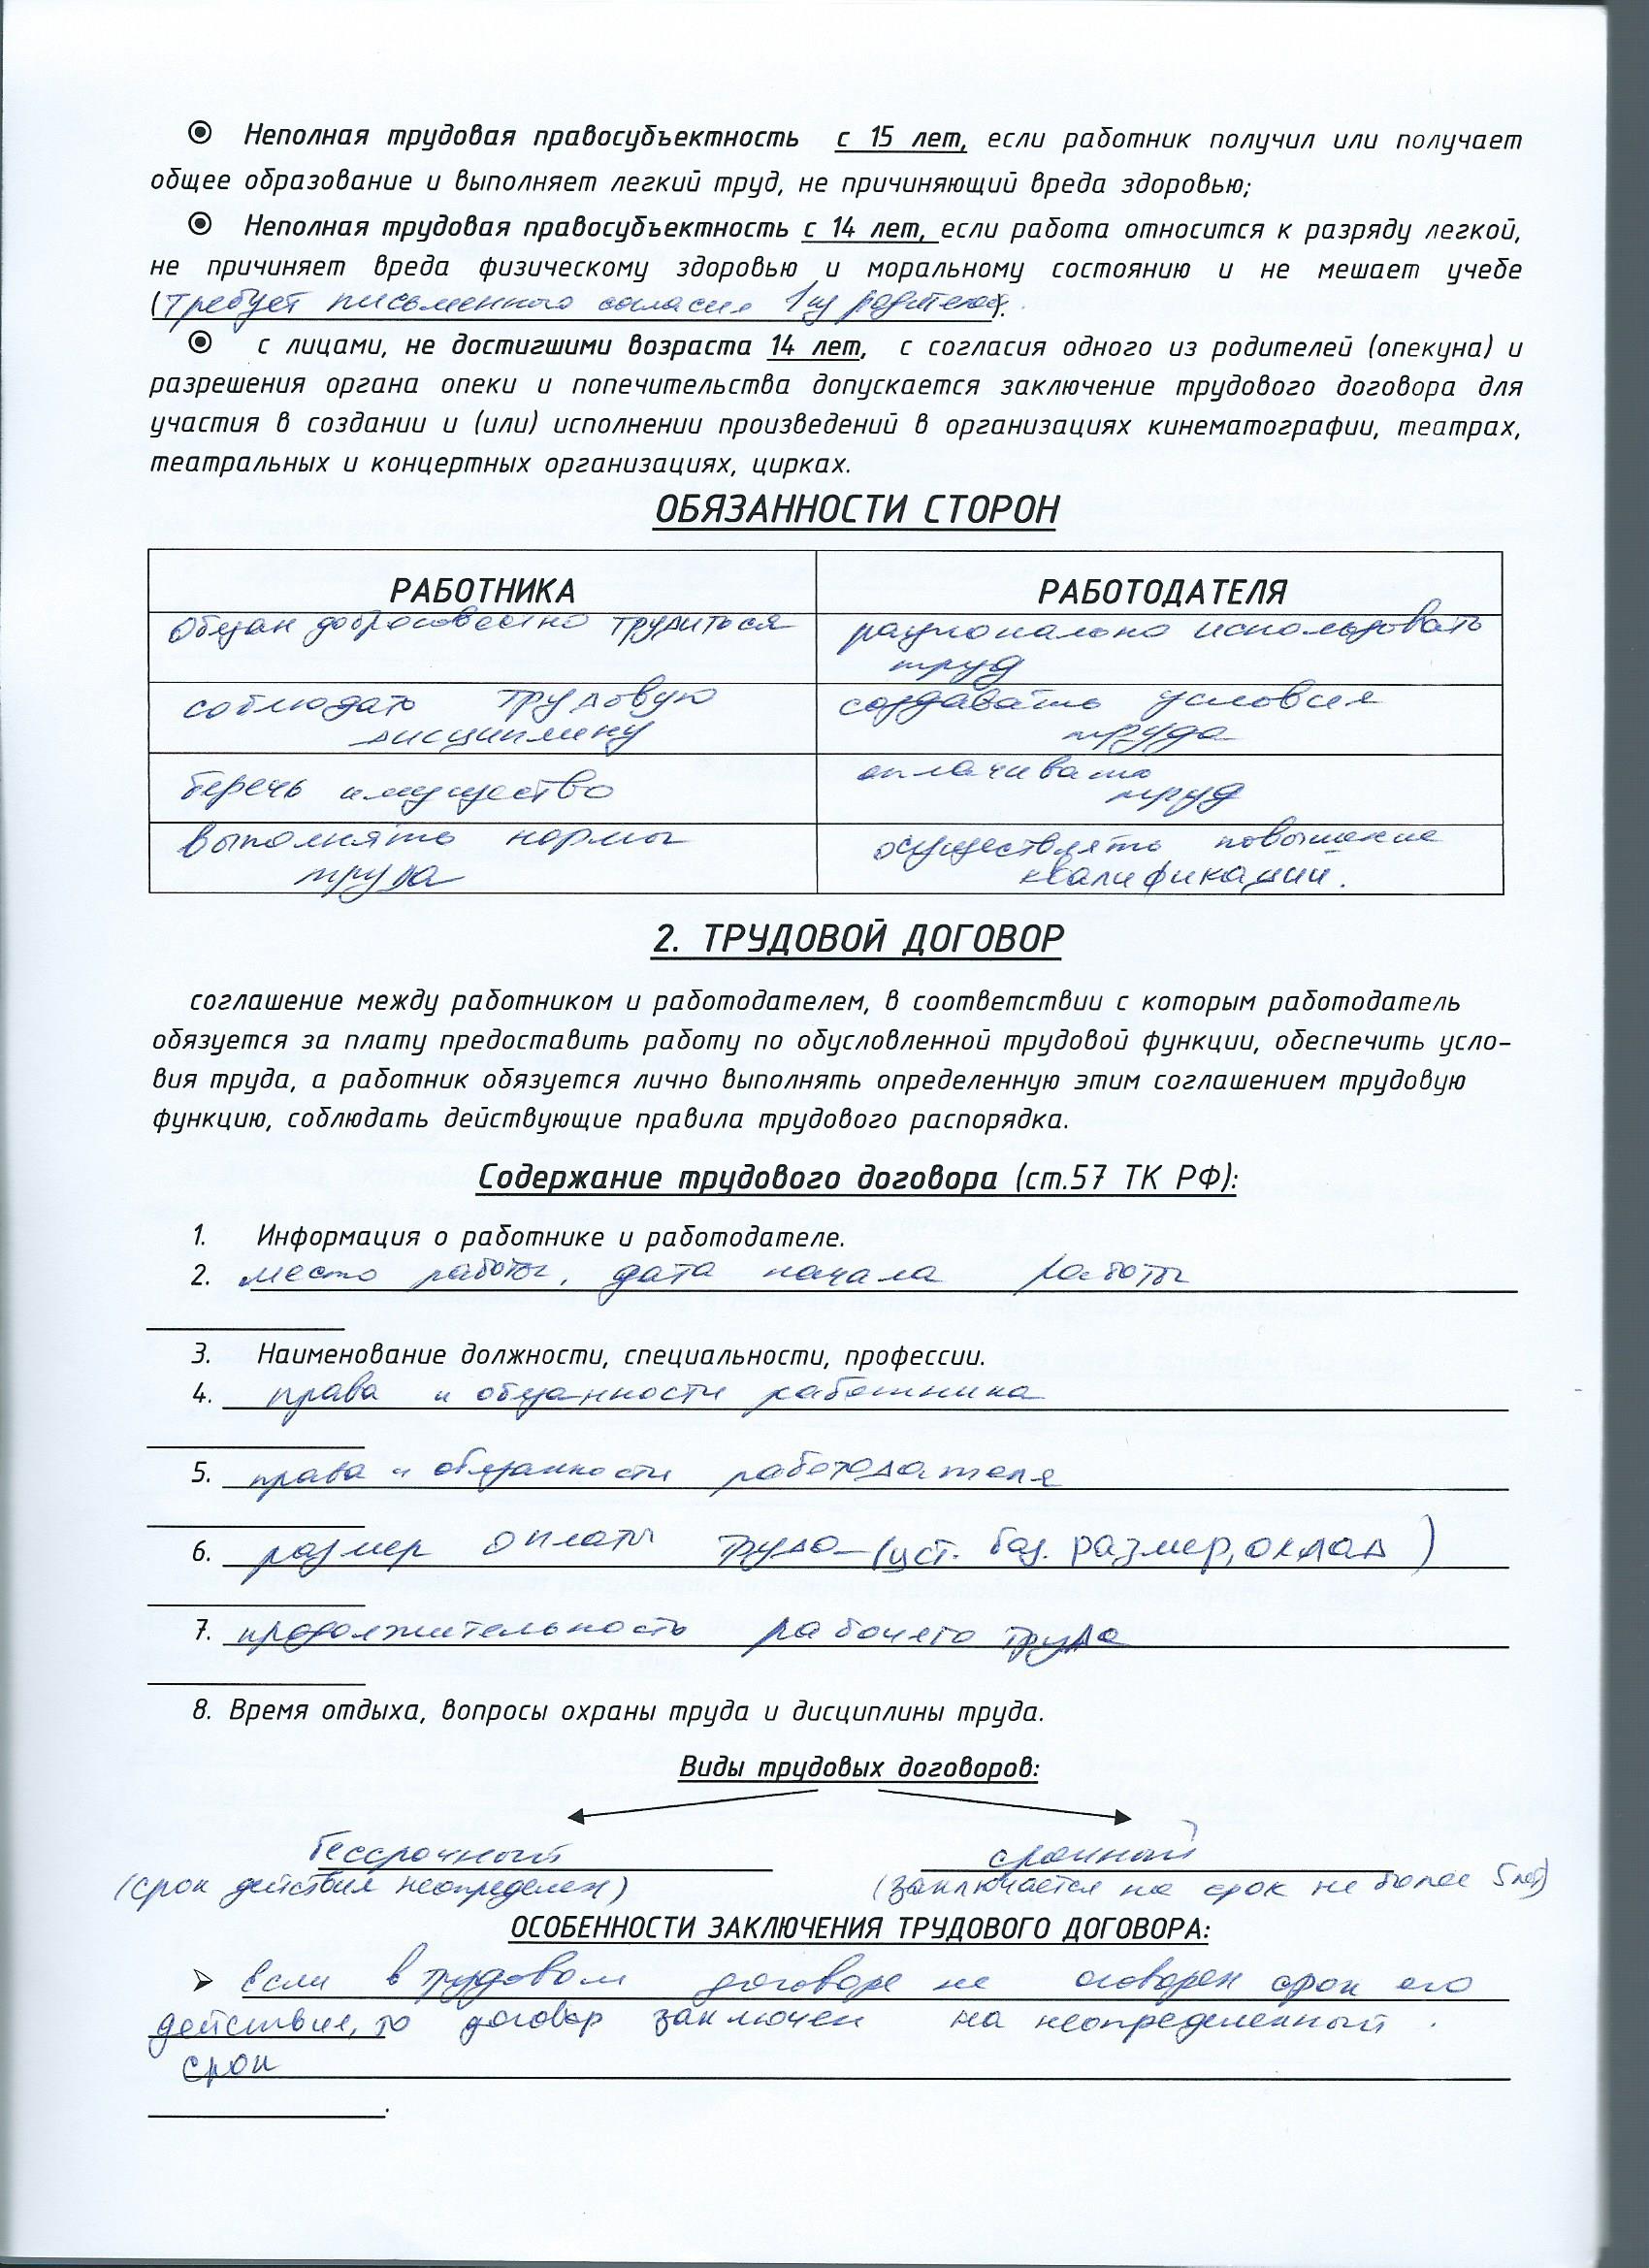 ⦿ Неполная трудовая правосубъектность с 15 лет, если работник получил или получает
общее образование и выполняет легкий труд, не причиняющий вреда здоровью;
⦿ Неполная трудовая правосубъектность с 14 лет, если работа относится к разряду легкой,
не причиняет вреда физическому здоровью и моральному состоянию и не мешает учебе
(требует письменного согласия 1 из родителей).
⦿ с лицами, не достигшими возраста 14 лет, с согласия одного из родителей (опекуна) и
разрешения органа опеки и попечительства допускается заключение трудового договора для
участия в создании и (или) исполнении произведений в организациях кинематографии, театрах,
театральных и концертных организациях, цирках.
ОБЯЗАННОСТИ СТОРОН
РАБОТНИКА РАБОТОДАТЕЛЯ
Обязан добросовестно трудиться рационально использовать
труд
соблюдать трудовую создавать условия
дисциплину труда
беречь имущество оплачивать
труд
выполнять нормы осуществлять повышение
труда квалификации.
2. ТРУДОВОЙ ДОГОВОР
соглашение между работником и работодателем, в соответствии с которым работодатель
обязуется за плату предоставить работу по обусловленной трудовой функции, обеспечить усло-
вия труда, а работник обязуется лично выполнять определенную этим соглашением трудовую
функцию, соблюдать действующие правила трудового распорядка.
Содержание трудового договора (ст.57 ТК РФ):
1. Информация о работнике и работодателе.
2. место работы, дата начала работы
3. Наименование должности, специальности, профессии.
4. права и обязанности работника
5. права и обязанности работодателя
6. размер оплаты труда (уст. баз. размер, оклад)
7. продолжительность рабочего труда
8. Время отдыха, вопросы охраны труда и дисциплины труда.
Виды трудовых договоров:
бессрочный срочный
(срок действия неопределен) (заключается на срок не более 5 лет)
ОСОБЕННОСТИ ЗАКЛЮЧЕНИЯ ТРУДОВОГО ДОГОВОРА:
➢ Если в трудовом договоре не оговорен срок его
действия, то договор заключен на неопределенный
срок